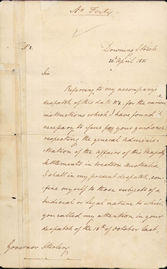 No. Forty
Downing Street
April
Sir
Referring to my accompanying
despatch of this date No. for the various
instructions which I have found it
necessary to give for your guidance
respecting the general Adminis-
tration of the affairs of the
Settlements in Western Australia,
I shall in my present despatch, con-
fine myself to those subjects of a
Judicial or legal nature to which
you called my attention in your
despatch of the of October last.
Governor Stirling